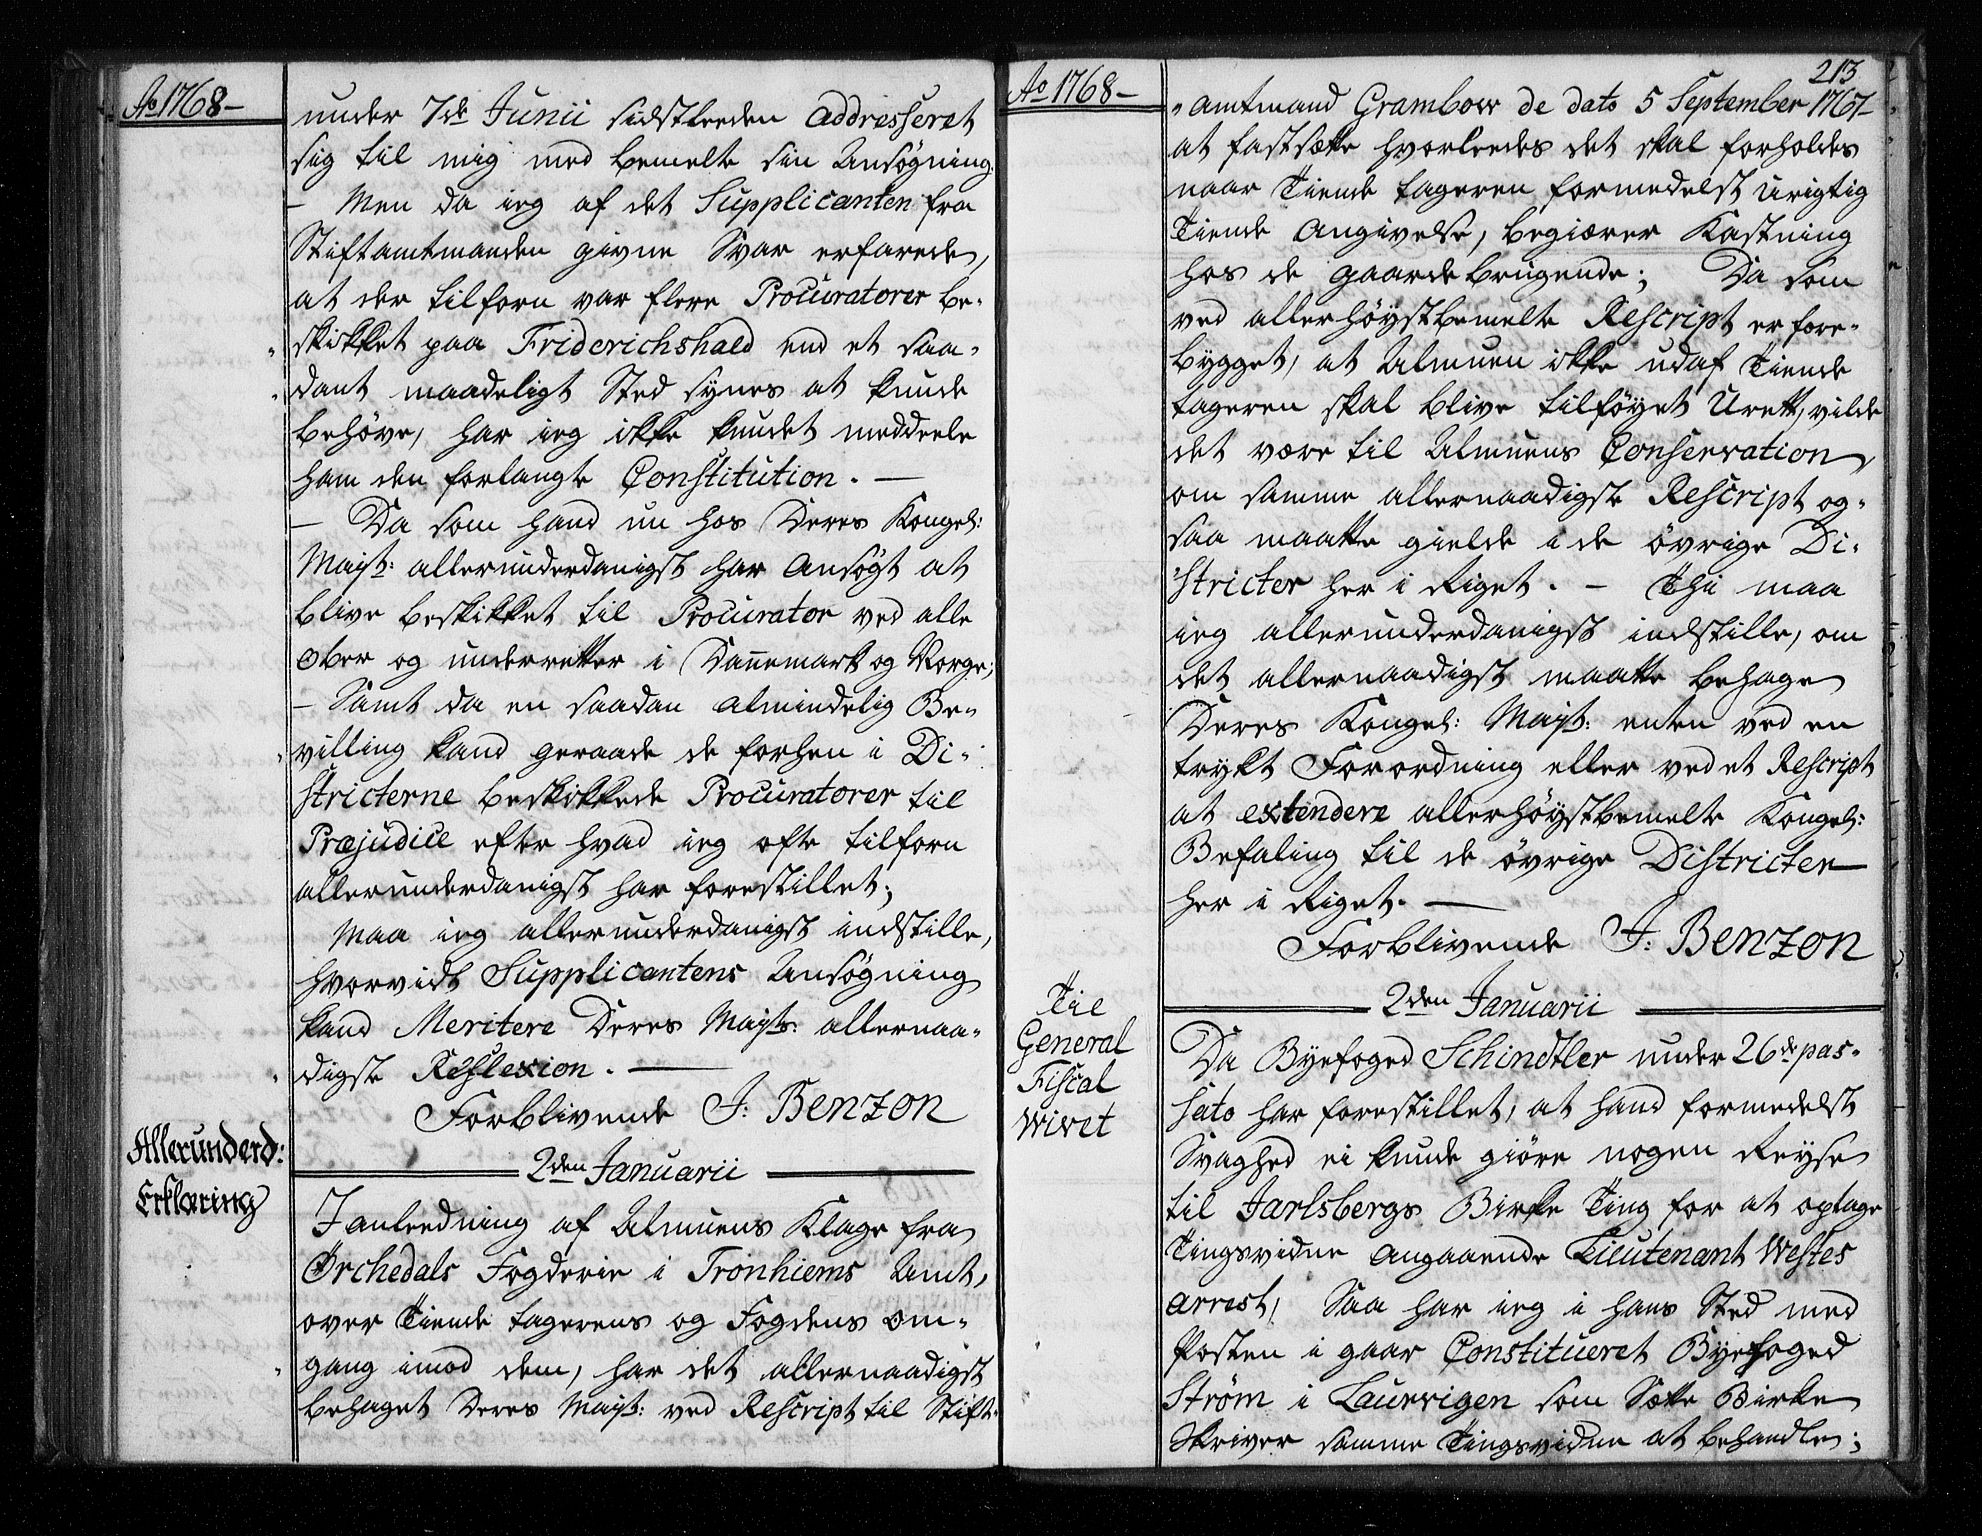 Ao 1768-
under 7de Junii sidstleeden addresseret
sig til mig med bemelte sin Ansøgning:
- Men da ieg af det Supplicanten fra
Stiftamtmanden givne Svar erfarede,
at der tilforn var flere Procuratorer be-
skikket paa Friderichshald end et saa-
dant maadeligt Sted synes at kunde
behøve, har ieg ikke kundet meddeele
ham den forlangte Constitution. -
- Da som hand nu hos Deres Kongel:
Mayst: allerunderdanigst har ansøgt at
blive beskikket til Procurator ved alle
Ober og underretter i Dannemark og Norge;
- Samt da en saadan almindelig Be-
villing kand geraade de forhen i Di-
stricterne beskikkede Procuratorer til
Præjudice efter hvad ieg ofte tilforn
allerunderdanigst har forestillet;
Maa ieg allerunderdanigst indstille,
hvorvidt Supplicantens Ansøgning
kand Meritere Deres Mayts: allernaa-
digste Reflexion. -
Forblivende J: Benzon
2den Januarii
Allerunderd:
Erklæring
I anleedning af Almuens Klage fra
Ørchedals Fogderie i Tronhiems Amt,
over Tiende tagerens og Fogdens om-
gang imod dem, har det allernaadigst
behaget Deres Mayst: ved Rescript til Stift-
Ao 1768-
213
"amtmand Grambow de dato 5 September 1767-
at fastsætte hvorleedes det skal forholdes
naar Tiende tageren formedelst urigtig
Tiende Angivelse, begiærer Kastning
hos de gaardebrugende; Da som
ved allerhøystbemelte Rescript er fore-
bygget, at Almuen ikke udaf Tiende
tageren skal blive tilføyet Urett, vilde
det være til Almuens Conservation,
om samme allernaadigste Rescript og-
saa maatte gielde i de øvrige Di-
stricter her i Riget. - Thi maa
ieg allerunderdanigst indstille, om
det allernaadigst maatte behage
Deres Kongel: Mayst: enten ved en
trykt Forordning eller ved et Rescript
at extendere allerhøystbemelte Kongel:
Befaling til de øvrige Districter
her i Riget. -
Forblivende J: Benzon
2den Januarii
Til
General
Fiscal
Wivet
Da Byefoged Schindtler under 26de pas-
sato har forestillet, at hand formedelst
Svaghed ei kunde giøre nogen Reyse
til Jarlsbergs Birke Ting for at optage
Tingsvidne angaaende Lieutenant Westes
arrest, Saa har ieg i hans Sted med
Posten i gaar Constitueret Byefoged
Strøm i Laurvigen som Sætte Birke
Skriver samme Tingsvidne at behandle;